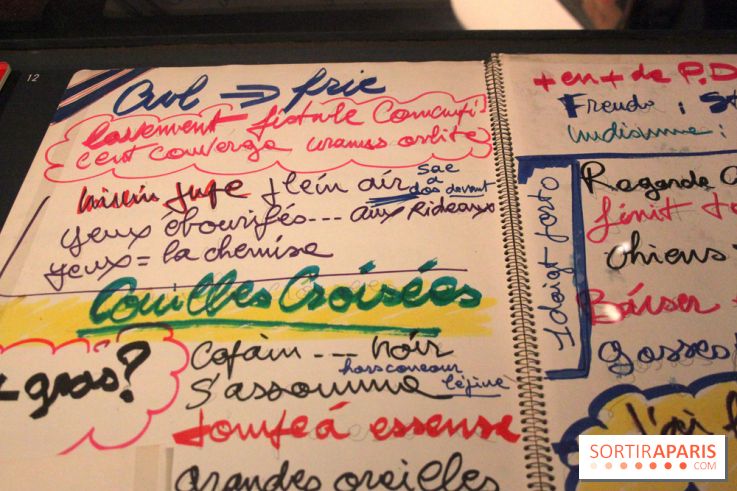 12
Cul => fric
lavement fistule
c'est converge uranus orbite
Jupe plein air
sac
à
dos devant
yeux ébourifés... aux Rideaux
yeux = la chemise
Couilles Croisées
gras?
Copain --- noir
hors concour
S'assomme
tompeá essense
grandes oreilles
+ en + de P.D
Freud :
indienne :
1 doigt
Regarde
finit
chiens
Baiser
gosses
J'ai
SORTIRAPARIS
.COM